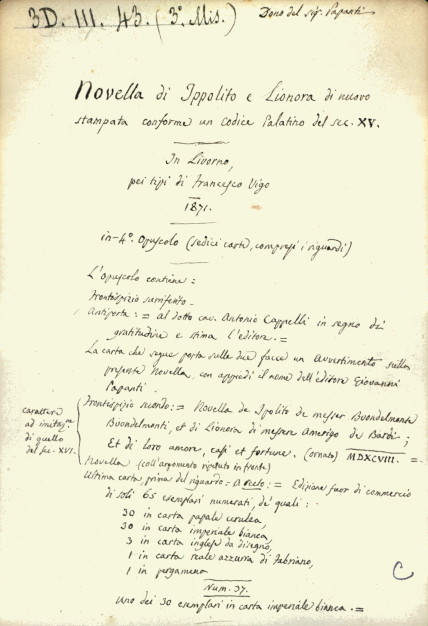 3D. III. 43. (3°. Mis.)
Dono del sig. Papanti
Novella di Ippolito e Lionora di nuovo
stampata conforme un codice Palatino del sec. XV.
In Livorno,
pei tipi di Francesco Vigo
1871.
in-4°. Opuscolo (sedici carte, compresi i riguardi)
L'opuscolo contiene:
Frontespizio surriferito.
Antiporta: = Al dotto cav. Antonio Cappelli in segno di
gratitudine e stima l'editore. =
La carta che segue porta sulle due facce un Avvertimento sulla
presente Novella, con appiedi il nome dell'editore Giovanni
Papanti.
carattere
ad imitaz.ne
di quello
del sec. XVI.
Frontespizio secondo: = Novella de Ipolito de messer Buondelmonte
Buondelmonti, et di Lionora di messere Amerigo de Bardi;
Et di loro amore, casi et fortune. (ornato) MDXCVIII. =
Novella (coll'argomento ripetuto in fronte)
Ultima carta prima del riguardo. A recto: = Edizione fuor di commercio
di soli 65 esemplari numerati, de' quali:
30 in carta papale cerulea,
30 in carta imperiale bianca,
3 in carta inglese da disegno,
1 in carta reale azzurra di Fabriano,
1 in pergamena
Num. 37.
Uno dei 30 esemplari in carta imperiale bianca. =
C